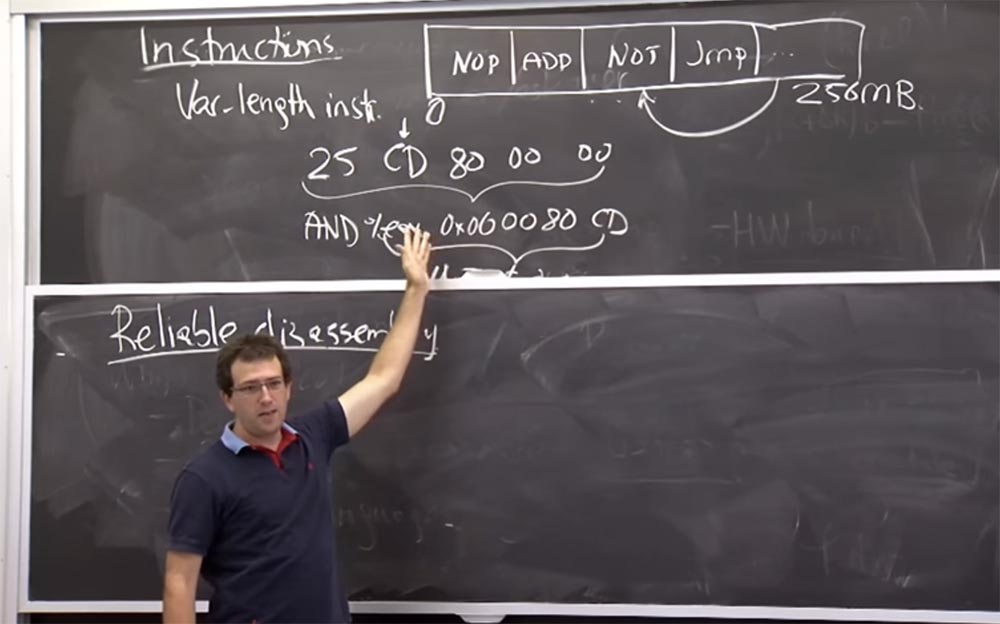 Instructions.
NOP ADD NOT Jmp ...
0 256MB.
Var-length instr.
25 CD 80 00 00
AND 0x000080 CD
Reliable disassembly
-HW